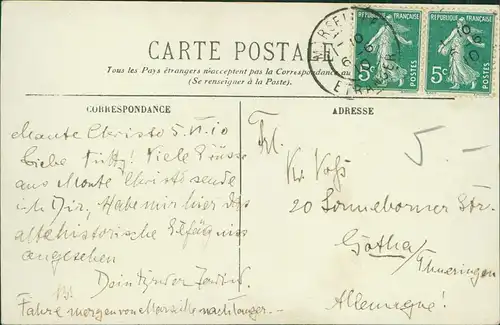 RÉPUBLIQUE FRANÇAISE
RÉPUBLIQUE FRANÇAISE
5c POSTES
5c POSTES
ETRANGER
CARTE POSTALE
Tous les Pays étrangers n'acceptent pas la Correspondance au
(Se renseigner à la Poste).
CORRESPONDANCE
ADRESSE
Monte Christo 5. VI. 10
Liebe Viele Grüsse
aus Monte Christo sende
ich Dir, Habe mir hier das
althistorische Gefängniss
angesehen
Dein
Fahre morgen von Marseille nach Tanger. -
Frl.
Voss
5.-
20 Sonneborner Str.
Gotha /
Thueringen
Allemagne!